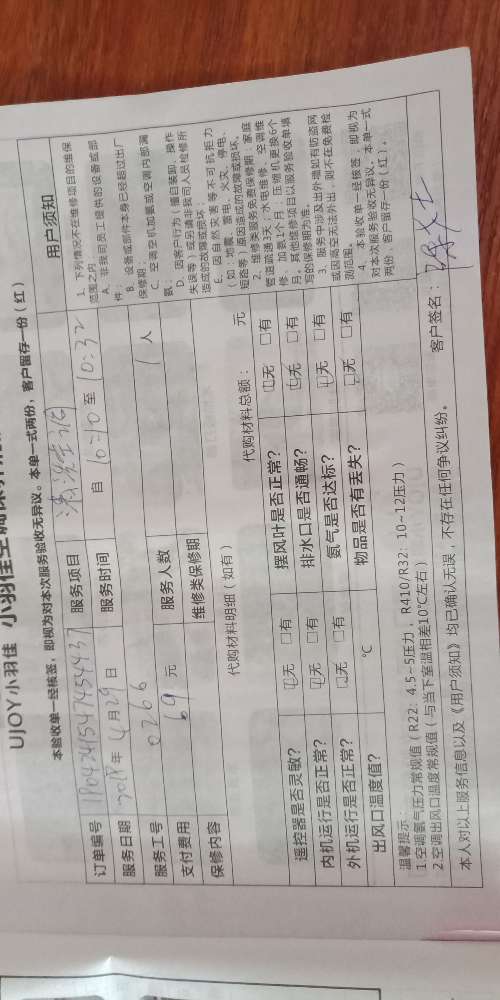 UJOY小羽佳 小羽佳空调保养
本验收单一经核签，即视为对本次服务验收无异议。本单一式两份，客户留存一份（红）
订单编号 服务项目 清洗
服务日期 2019年 4月29日 服务时间 自 10:10 至 10:32
服务工号 0266 服务人数 1人
支付费用 69 元 维修类保修期
保修内容
代购材料明细（如有） 代购材料总额： 元
遥控器是否灵敏？ 无 有 摆风叶是否正常？ 无 有
内机运行是否正常？ 无 有 排水口是否通畅？ 无 有
外机运行是否正常？ 无 有 氨气是否达标？ 无 有
出风口温度值？ ℃ 物品是否有丢失？ 无 有
用户须知
1、下列情况不在维修项目的维保
范围之内：
A、非我司员工提供的设备或部
件；
B、设备或部件本身已经超过出厂
保修期；
C、空调空机加氨或空调内部漏
氨；
D、因客户行为（擅自装卸、操作
失误等）或另请非我司人员检修所
造成的故障或损坏；
E、因自然灾害等不可抗拒力
（如：地震、雷电、火灾、停电、
短路等）原因造成的故障或损坏。
2、维修类服务免费保修期：家庭
管道疏通3天，水电维修、空调维
修、加氨1个月，压缩机更换6个
月。其他维修项目以服务验收单填
写的保修期为准。
3、服务中涉及出外墙如有防盗网
或因高空无法外出，则不在免费检
测范围。
4、本验收单一经核签，即视为
对本次服务验收无异议。本单一式
两份，客户留存一份（红）。
温馨提示：
1.空调氨气压力常规值（R22：4.5~5压力，R410/R32：10~12压力）
2.空调出风口温度常规值（与当下室温相差10℃左右）
本人对以上服务信息以及《用户须知》均已确认无误，不存在任何争议纠纷。 客户签名：